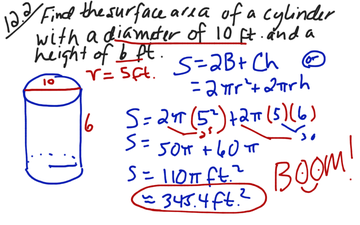 12.2 Find the surface area of a cylinder
with a diameter of 10 ft. and a
height of 6 ft.
r = 5 ft.
S = 2B + Ch
or
= 2πr² + 2πrh
10
6
S = 2π(5²) + 2π(5)(6)
25
30
S = 50π + 60π
S = 110π ft.²
≈ 345.4 ft.²
BOOM!